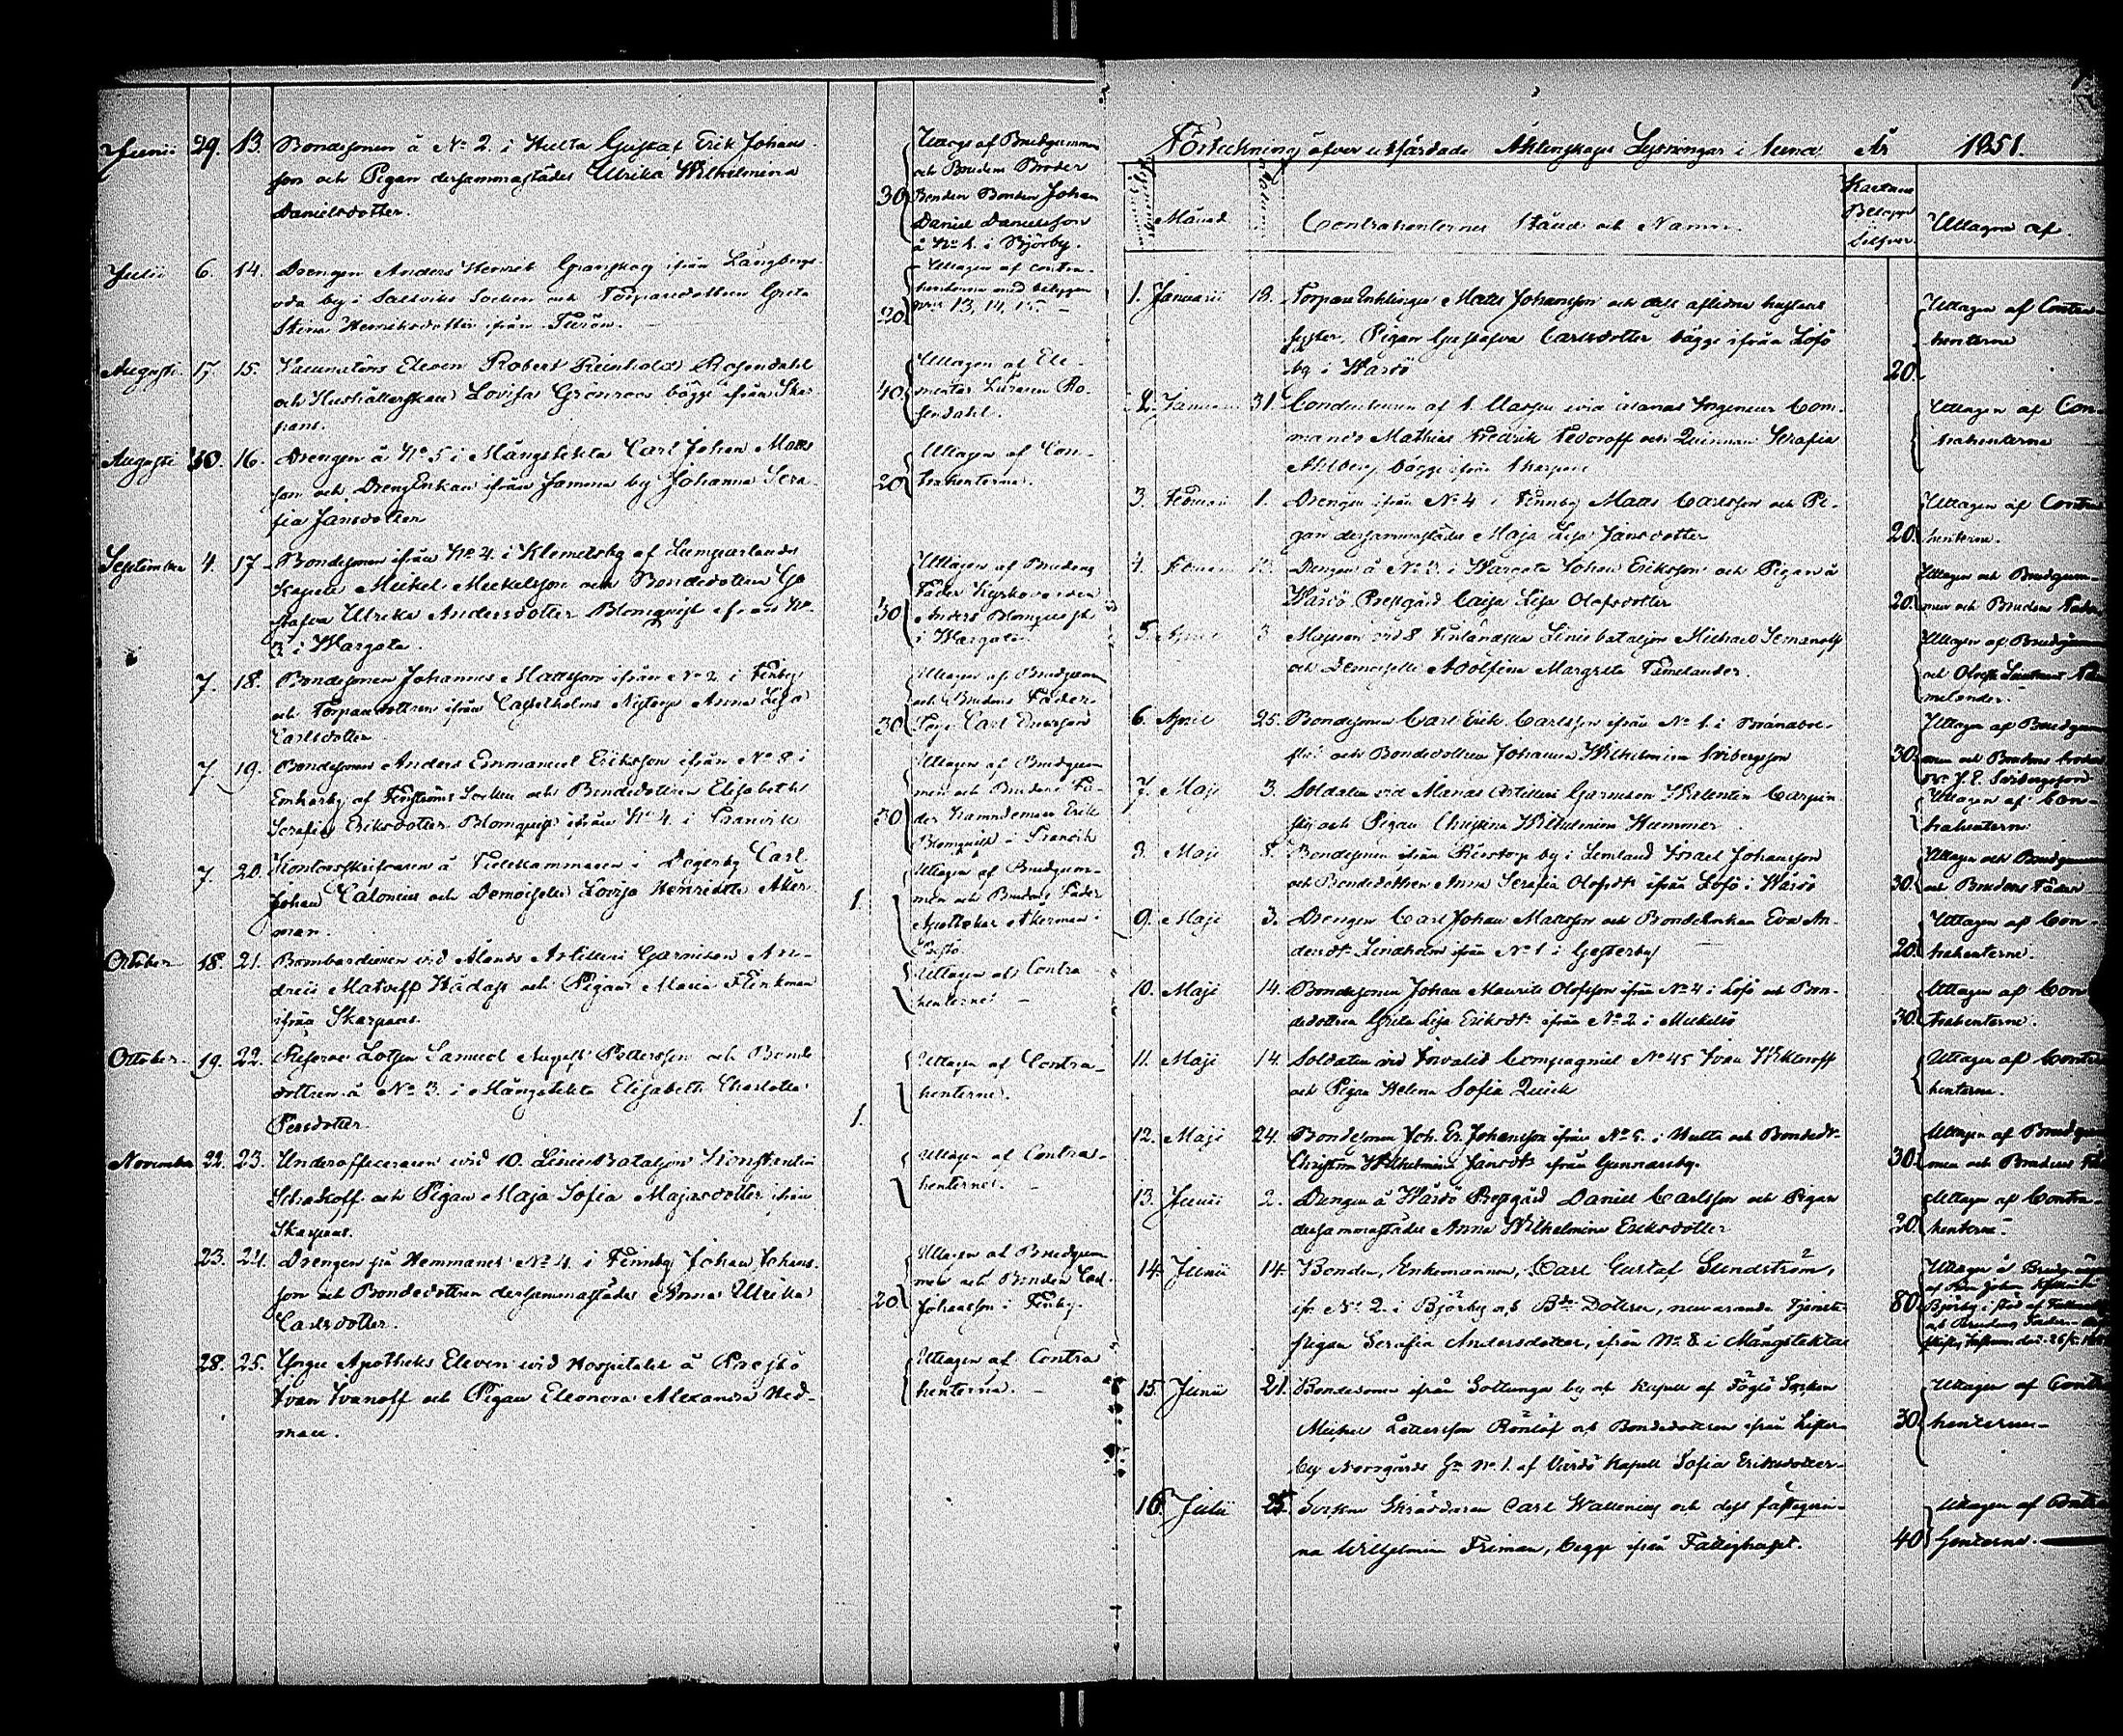 Junii 29. 13. Bondesonen å No 2. i Hulta Gustaf Erik Johans-
son och Pigan dersammastädes Ulrika Wilhelmina
Danielsdotter.
30
Uttags af Brudgummen
och Brudens Broder
Bonden Bonden Johan
Daniel Danielsson
å No 1. i Björby.
Julii 6. 14. Drengen Anders Henrik Granskog ifrån Långbergs-
öda by i Saltviks Socken och Torparedottren Greta
Stina Henriksdotter ifrån
20
Uttagen af contra-
henterne med
13, 14, 15. –
Augusti 17 15. Vaccinations Eleven Robert Reinhold Rosendahl
och Hushållerskan Lovisa Grönroos bägge ifrån Skar-
pans.
40
Uttagen af Ele-
Ro-
sendahl.
Augusti 30. 16. Drengen å No 5 i Mångstekta Carl Johan Mats
son och DrengEnkan ifrån samma by Johanna Sera-
fia Jansdotter
20
Uttagen af Con-
trahenterne.
September 4. 17 Bondesonen ifrån No 4. i Klemetsby af Lumparlands
Kapell Mickel Mickelsson och Bondedottren Gu
stafva Ulrika Andersdotter Blomquist ifrån No
3 i Wargata.
30
Uttagen af Brudens
Fader
Anders Blomquist
i Wargata
7. 18. Bondesonen Johannes Mattsson ifrån No 2 i Finby
och Torparedottren ifrån Castelholms Nytorp Anna Lisa
Carlsdotter
30
Uttagen af Brudgum
och Brudens Fader
Torp. Carl
7. 19. Bondesonen Anders Emmanuel Eriksson ifrån No 8 i
Emkarby af Finströms Socken och Bondedottren Elisabeth
Serafia Eriksdotter Blomquist ifrån No 4. i Tranvik
30
Uttagen af Brudgum
men och Brudens Fa-
der Nämndeman Erik
Blomquist i Tranvik
7. 20. Kontorsskrifvaren å Tullkammaren i Degerby Carl
Johan Calonius och Demoiselle Lovisa Henriette Åker-
man.
1.
Uttagen af Brudgum-
men och Brudens Fader
Apothekar Åkerman i
Prestö
October 18. 21. Bombardieren vid Ålands Artilleri Garnison An-
dreii Matveff Hädass och Pigan Maria Flinkman
ifrån Skarpans.
Uttagen af Contra
henterne. –
October. 19. 22. Reserve Lotsen Samuel August Pettersson och Bonde
dottren å No 3. i Mångstekta Elisabeth Charlotta
Persdotter
1.
Uttagen af Contra-
henterne.
November 22. 23. Underofficeraren wid 10. Linie Bataljon Konstantin
och Pigan Maja Sofia Majasdotter ifrån
Skarpans.
Uttagen af Contra-
henterne. –
23. 24. Drengen på Hemmanet No 4. i Finnby Johan Johans-
son och Bondedottren dersammastädes Anna Ulrika
Carlsdotter.
20
Uttagen af Brudgum
men och Bonden Carl
Johansson i Finby.
28. 25. Yngre Apotheks Eleven wid Hospitalet å Prestö
Ivan Ivanoff och Pigan Eleonora Alexandra Hed-
man.
Uttagen af Contra
henterna. –
Förteckning öfver utfärdade Äktenskaps Lysningar i Sund År 1851.
Månad
Contrahenternes Stånd och Namn.
Kartans
Belopp
Silfver
Uttagen af
1. Januarii 18. TorpareEnklingen Matts Johansson och dess aflidna hustrus
syster, Pigan Gustafva Carlsdotter bägge ifrån Löfö
by i Wårdö
20.
Uttagen af Contra-
henterne
2. Januarii 31. Conducteuren af 1. Classen wid Ålands Ingenieur Com-
mando Mathias Fredrik Fedoroff och Quinnan Serafia
Ahlberg bägge ifrån Skarpans
Uttagen af Con-
trahenterne
3. Februarii 1. Drengen ifrån No 4 i Finnby Matts Carlsson och Pi-
gan dersammastädes Maja Lisa Jansdotter
20.
Uttagen af Contra
henterne.
4. Februarii Drengen å No 3. i Wargata Johan Eriksson och Pigan å
Wårdö Prestgård Caisa Lisa Olofsdotter
20.
Uttagen och Brudgum-
men och Brudens Fader
5. April 3 vid 8 Finländska Liniebataljon Michael
och Demoiselle Adolfina Margreta Tamelander.
Uttagen af Brudgum
och
melander.
6. April 25. Bondesonen Carl Erik Carlsson ifrån No 1. i Brändbol-
stad och Bondedottren Johanna Wilhelmina Svibergsson
30.
Uttagen af Brudgum
men och Brudens broder
J. E. Svibergsson
7. Maji 3. Soldaten vid Ålands Artilleri Garnison Walentin Carpin-
sky och Pigan Christina Wilhelmina Hummer
Uttagen af Con-
trahenterne
8. Maji 8. Bondesonen ifrån Rörstorp by i Lemland Israel Johansson
och Bondedottren Anna Serafia Olofsdr ifrån Löfö i Wårdö
30.
Uttagen och Brudgummen
och Brudens Fader
9. Maji 3. Drengen Carl Johan Mattsson och BondeEnkan Eva An-
dersdr Lindholm ifrån No 1 i Gesterby
20.
Uttagen af Con-
trahenterne.
10. Maji 14. Bondesonen Johan Mauritz Olofsson ifrån No 4 i Löfö och Bon-
dedottren Greta Lisa Eriksdr ifrån No 2 i Mickelsö
30.
Uttagen af Con
trahenterne.
11. Maji 14. Soldaten vid Invalid Compagniet No 45 Ivan Wiktoroff
och Pigan Helena Sofia Quick
Uttagen af Contra
henterne.
12. Maji 24. Bondesonen Joh. Er. Johansson ifrån No 5. i Hulta och Bondedr
Christina Wilhelmina Jansdr ifrån Gunnarsby.
30.
Uttagen af Brudgum
men och Brudens
13. Junii 2. Drengen å Wårdö Prestgård Daniel Carlsson och Pigan
dersammastädes Anna Wilhelmina Eriksdotter
20.
Uttagen af Contra-
henterne.
14. Junii 14. Bonden, Enkemannen, Carl Gustaf Sundström,
ifr. No 2. i Björby och Bde Dottren, nuvarande Tjenste-
pigan Serafia Andersdotter, ifrån No 8 i Mångstekta
80
Uttagen å
Björby i stöd af
och Brudens Faders
15. Junii 21. Bondesonen ifrån Sottunga by och Kapell af Föglö Socken
Michel Pettersson Rönlöf och Bondedottren ifrån Lifter
by Norrgårds Hn No 1. af Vårdö Kapell Sofia Eriksdotter.
30
Uttagen af Contra
henterne –
16. Julii 25. Socken Skräddaren Carl Wallenius och dess fästeqvin-
na Wilhelmina Friman, begge ifrån Fattighuset.
40
Uttagen af Contra
henterne. –